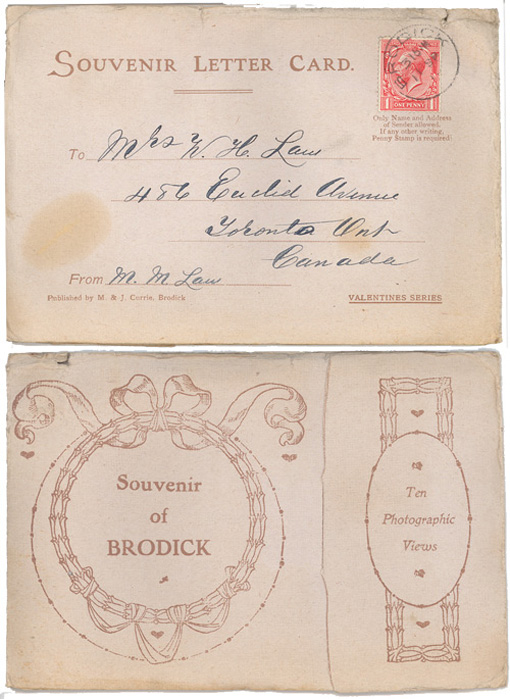 SOUVENIR LETTER CARD.
BRODICK
1 ONE PENNY 1
Only Name and Address
of Sender allowed.
If any other writing,
Penny Stamp is required.
To Mrs W. H. Law
486 Euclid Avenue
Toronto Ont
Canada
From M. M Law
Published by M. & J. Currie, Brodick
VALENTINES SERIES
Souvenir
of
BRODICK
Ten
Photographic
Views